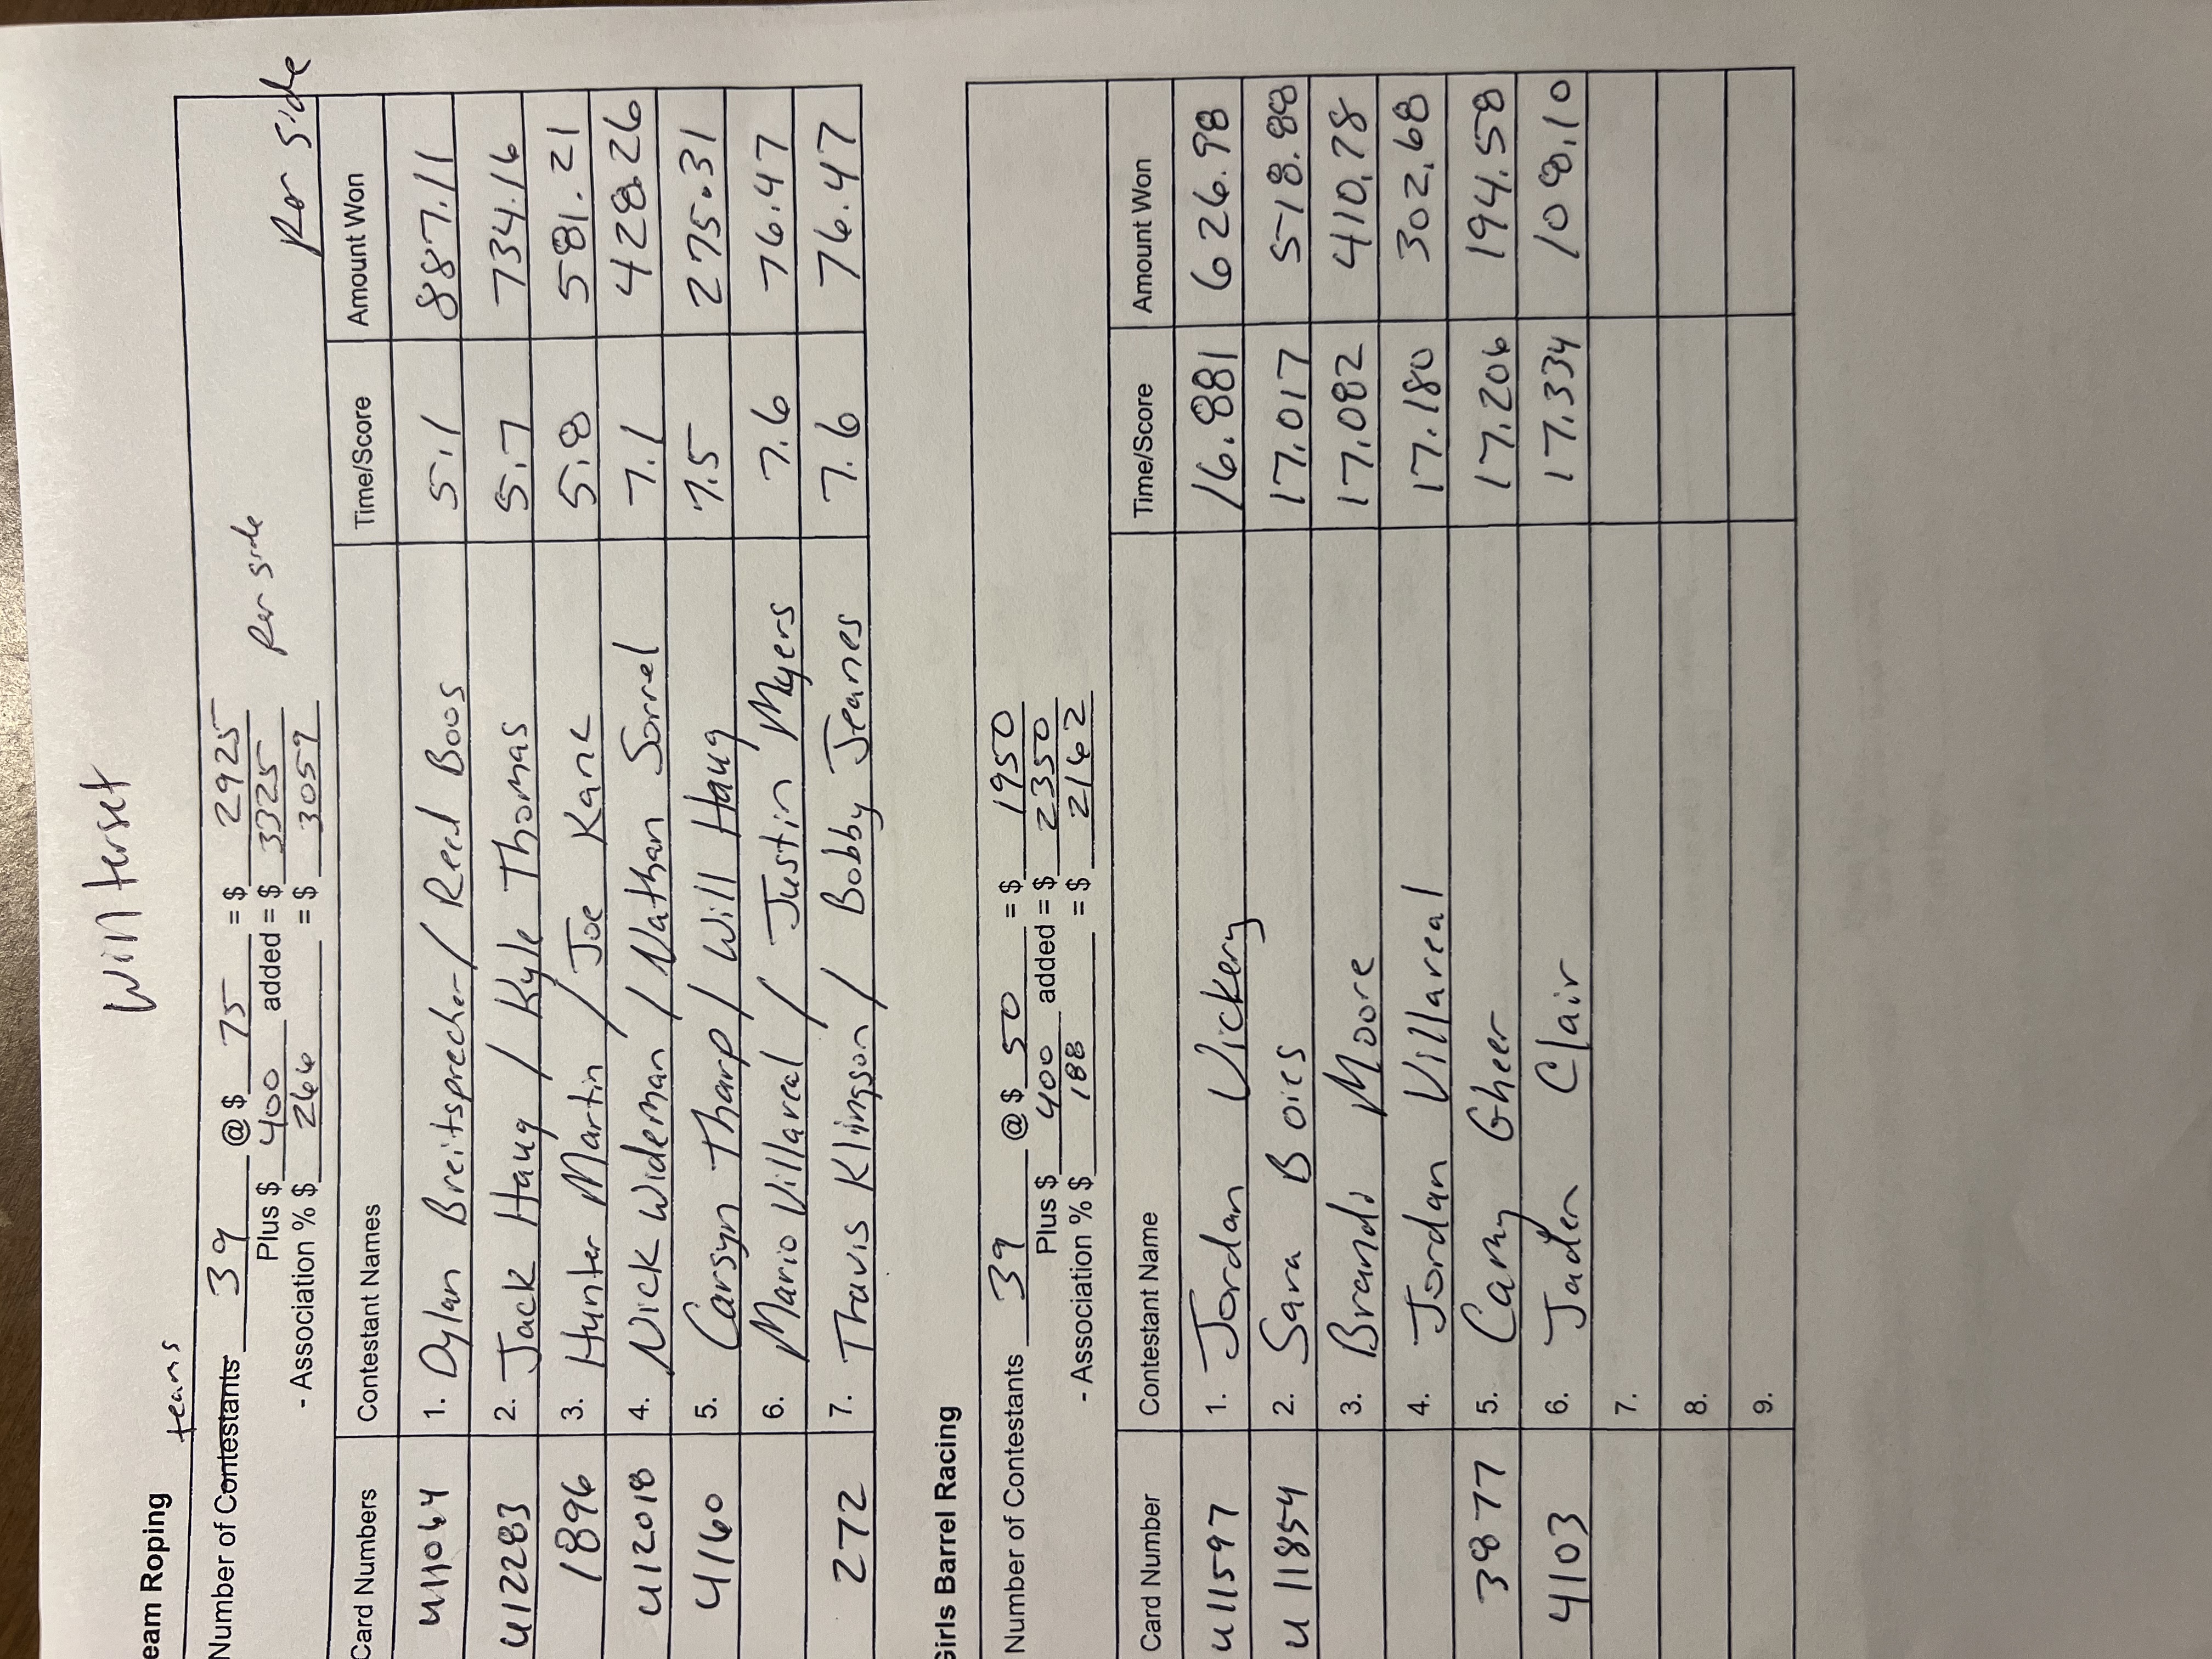 Winterset
eam Roping
teams
Number of Contestants 39 @ $ 75 = $ 2925
Plus $ 400 added = $ 3325 Per side
- Association % $ 266 = $ 3059 Per side
Card Numbers Contestant Names Time/Score Amount Won
U11064 1. Dylan Breitsprecher / Reed Boos 5.1 887.11
U12283 2. Jack Haug / Kyle Thomas 5.7 734.16
1896 3. Hunter Martin / Joe Kane 5.8 581.21
U12018 4. Nick Wideman / Nathan Sorrel 7.1 428.26
4160 5. Carsyn Tharp / Will Haug 7.5 275.31
6. Mario Villareal / Justin Myers 7.6 76.47
272 7. Travis Klingson / Bobby Jeanes 7.6 76.47
Girls Barrel Racing
Number of Contestants 39 @ $ 50 = $ 1950
Plus $ 400 added = $ 2350
- Association % $ 188 = $ 2162
Card Number Contestant Name Time/Score Amount Won
U11597 1. Jordan Vickery 16.881 626.98
U11854 2. Sara Boies 17.017 518.88
3. Brandi Moore 17.082 410.78
4. Jordan Villareal 17.180 302.68
3877 5. Camy Gheer 17.206 194.58
4103 6. Jaden Clair 17.334 108.10
7.
8.
9.